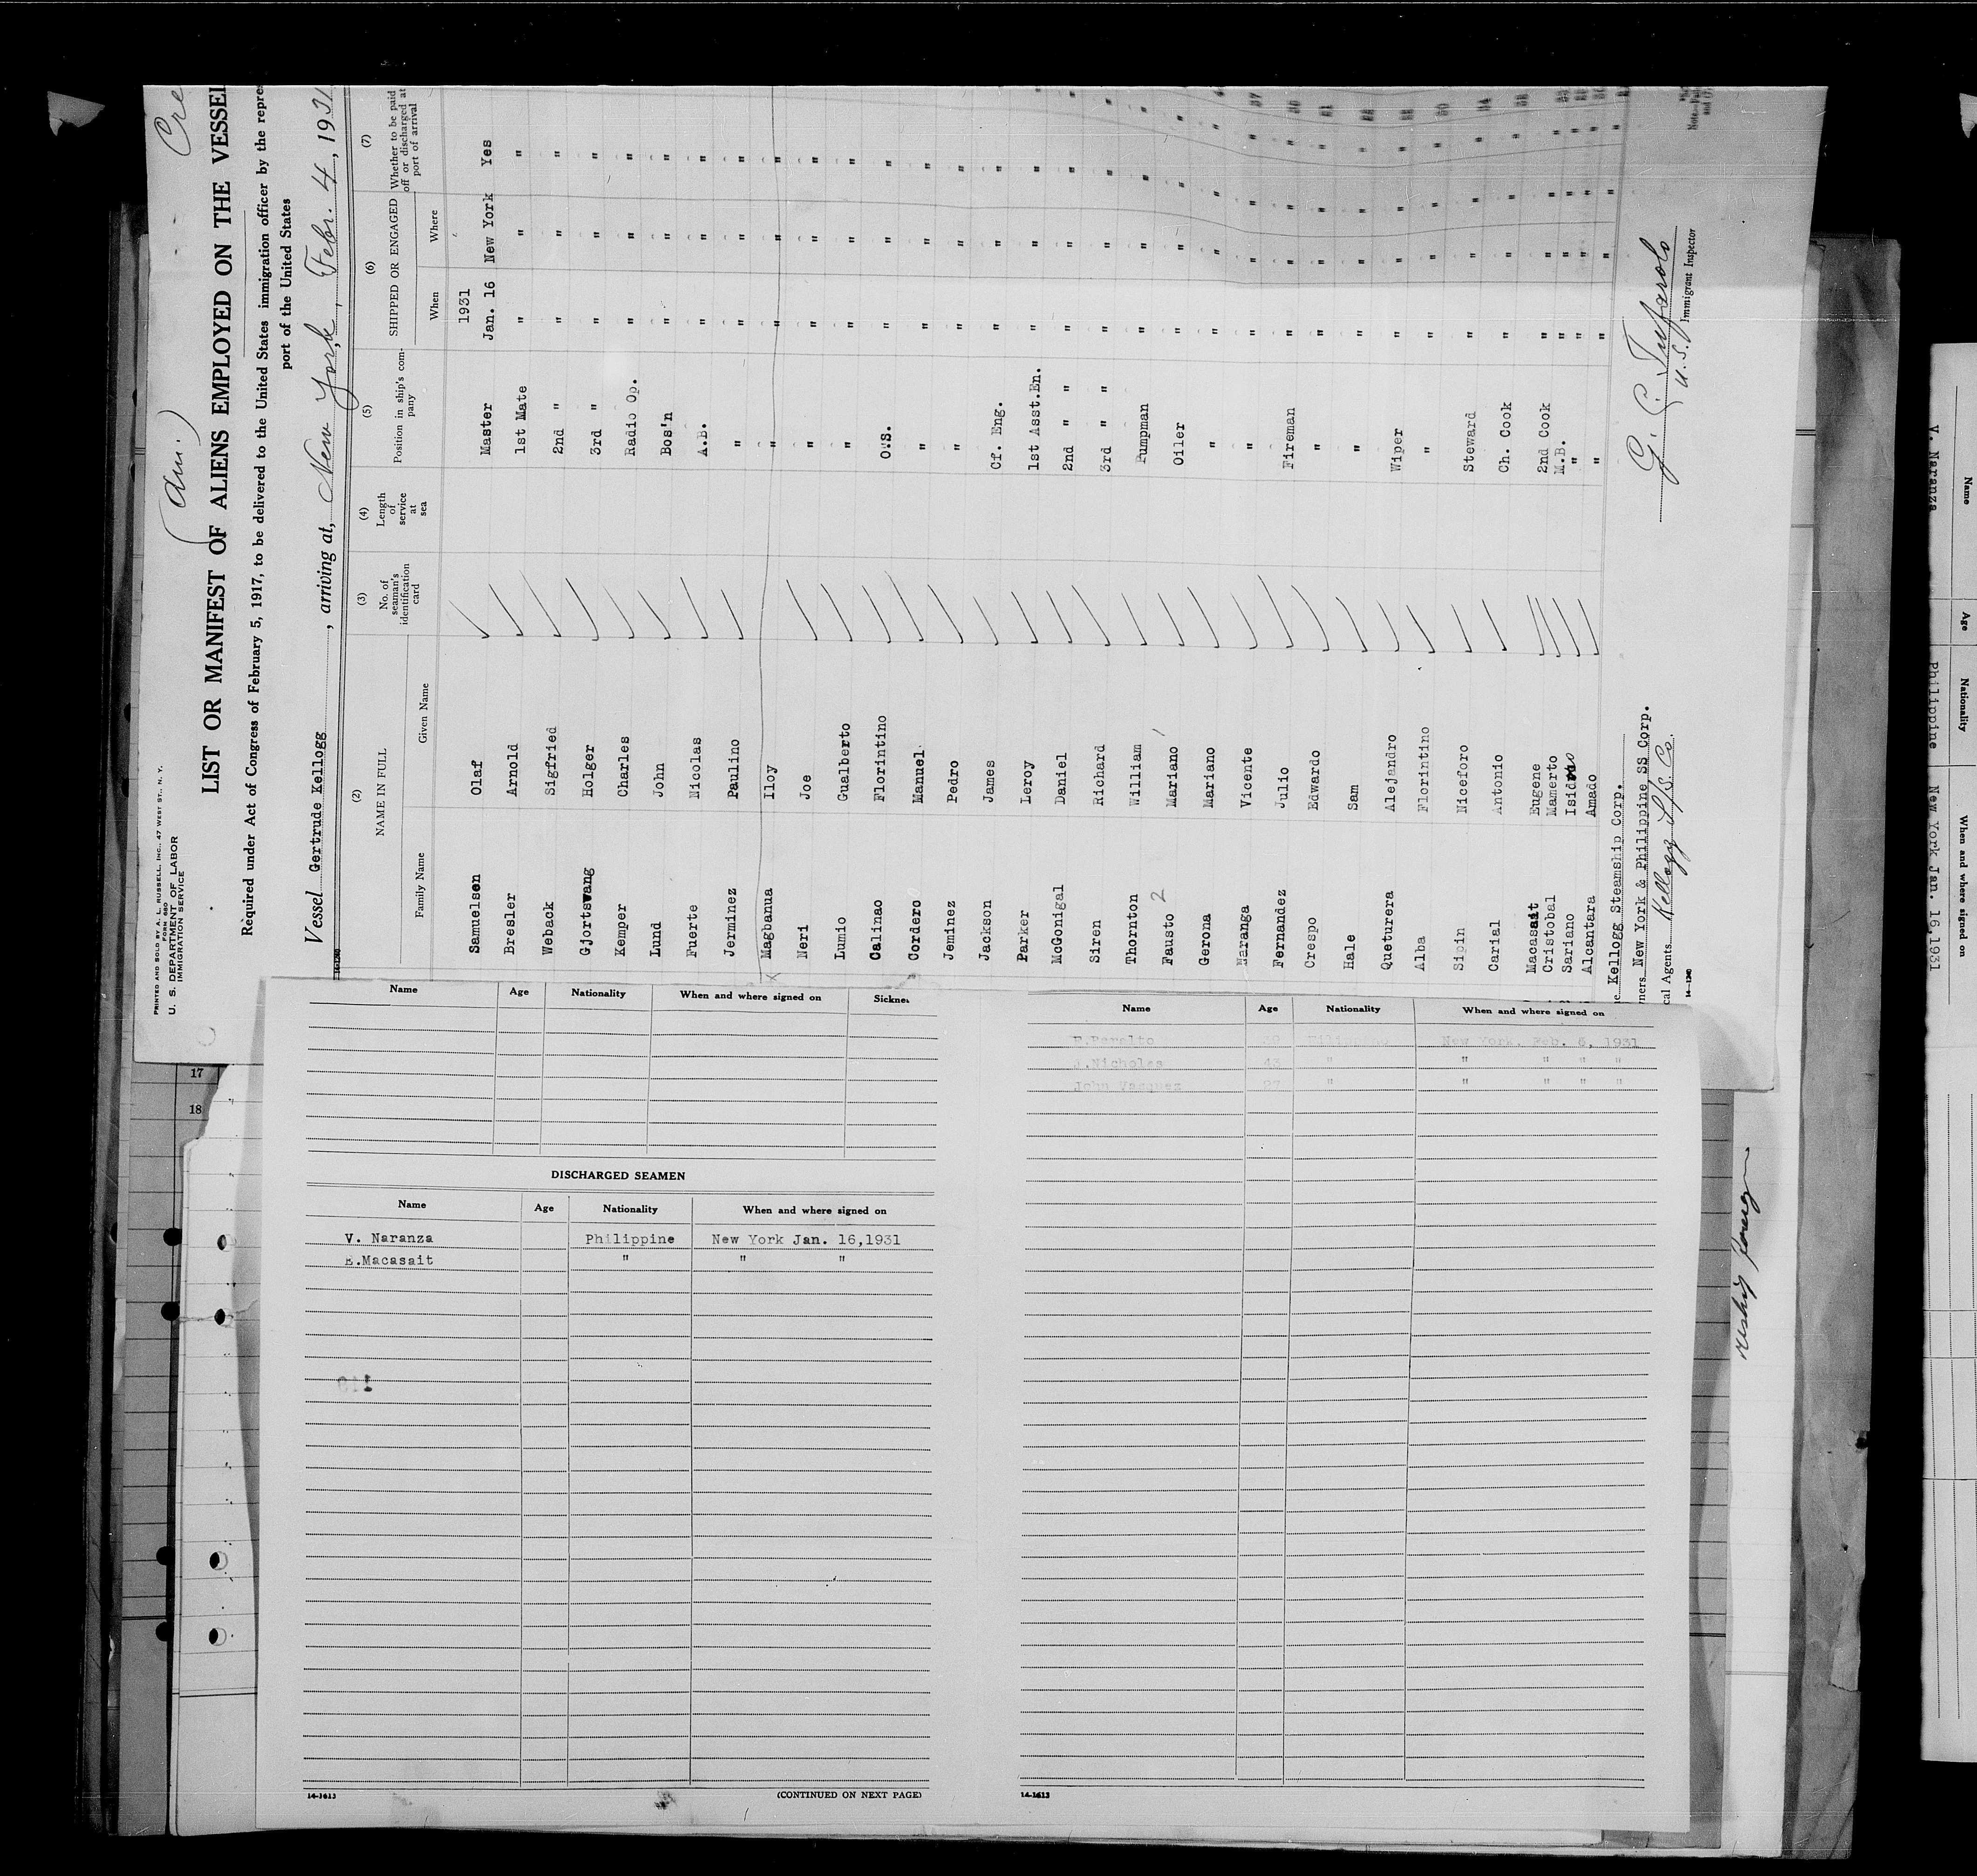 Cre
(Am.)
PRINTED AND SOLD BY A. L. RUSSELL, INC., 47 WEST ST., N. Y.
FORM 680
U. S. DEPARTMENT OF LABOR
IMMIGRATION SERVICE
LIST OR MANIFEST OF ALIENS EMPLOYED ON THE VESSEL
Required under Act of Congress of February 5, 1917, to be delivered to the United States immigration officer by the repres
port of the United States
Vessel Gertrude Kellogg, arriving at, New York, Febr. 4, 1931
(2) (3) (4) (5) (6) (7)
NAME IN FULL No. of seaman's identification card Length of service at sea Position in ship's company SHIPPED OR ENGAGED Whether to be paid off or discharged at port of arrival
Family Name Given Name When Where
1931
Samuelsen Olaf Master Jan. 16 New York Yes
Bresler Arnold 1st Mate " " "
Weback Sigfried 2nd " " " "
Gjortswang Holger 3rd " " " "
Kemper Charles Radio Op. " " "
Lund John Bos'n " " "
Fuerte Nicolas A.B. " " "
Jerminez Paulino " " " "
x Magbanua Iloy " " " "
Neri Joe " " " "
Lumio Gualberto " " " "
Calinao Florintino O.S. " " "
Cordero Manuel " " " "
Jeminez Pedro " " " "
Jackson James Cf. Eng. " " "
Parker Leroy 1st Asst.En. " " "
McGonigal Daniel 2nd " " " " "
Siren Richard 3rd " " " " "
Thornton William Pumpman " " "
Fausto 2 Mariano / Oiler " " "
Gerona Mariano " " " "
Naranga Vicente " " " "
Fernandez Julio Fireman " " "
Crespo Edwardo " " " "
Hale Sam " " " "
Queturera Alejandro Wiper " " "
Alba Florintino " " " "
Sipin Niceforo Steward " " "
Carial Antonio Ch. Cook " " "
Macasait Eugene 2nd Cook " " "
Cristobal Mamerto M.B. " " "
Sariano Isidro " " " "
Alcantara Amado " " " "
Kellogg Steamship Corp.
ners New York & Philippine SS Corp.
cal Agents Kellogg S/S. Co.
U. S. Immigrant Inspector
14-1240
Name Age Nationality When and where signed on Sicknes
DISCHARGED SEAMEN
Name Age Nationality When and where signed on
V. Naranza Philippine New York Jan. 16,1931
E.Macasait " " "
14-1613 (CONTINUED ON NEXT PAGE)
Name Age Nationality When and where signed on
New York. Feb. 6, 1931
J.Nicholas 43 " " " " "
John Vasquez 27 " " " " "
14-1613
17
18
reship foreign
Name Age Nationality When and where signed on
V. Naranza Philippine New York Jan. 16,1931